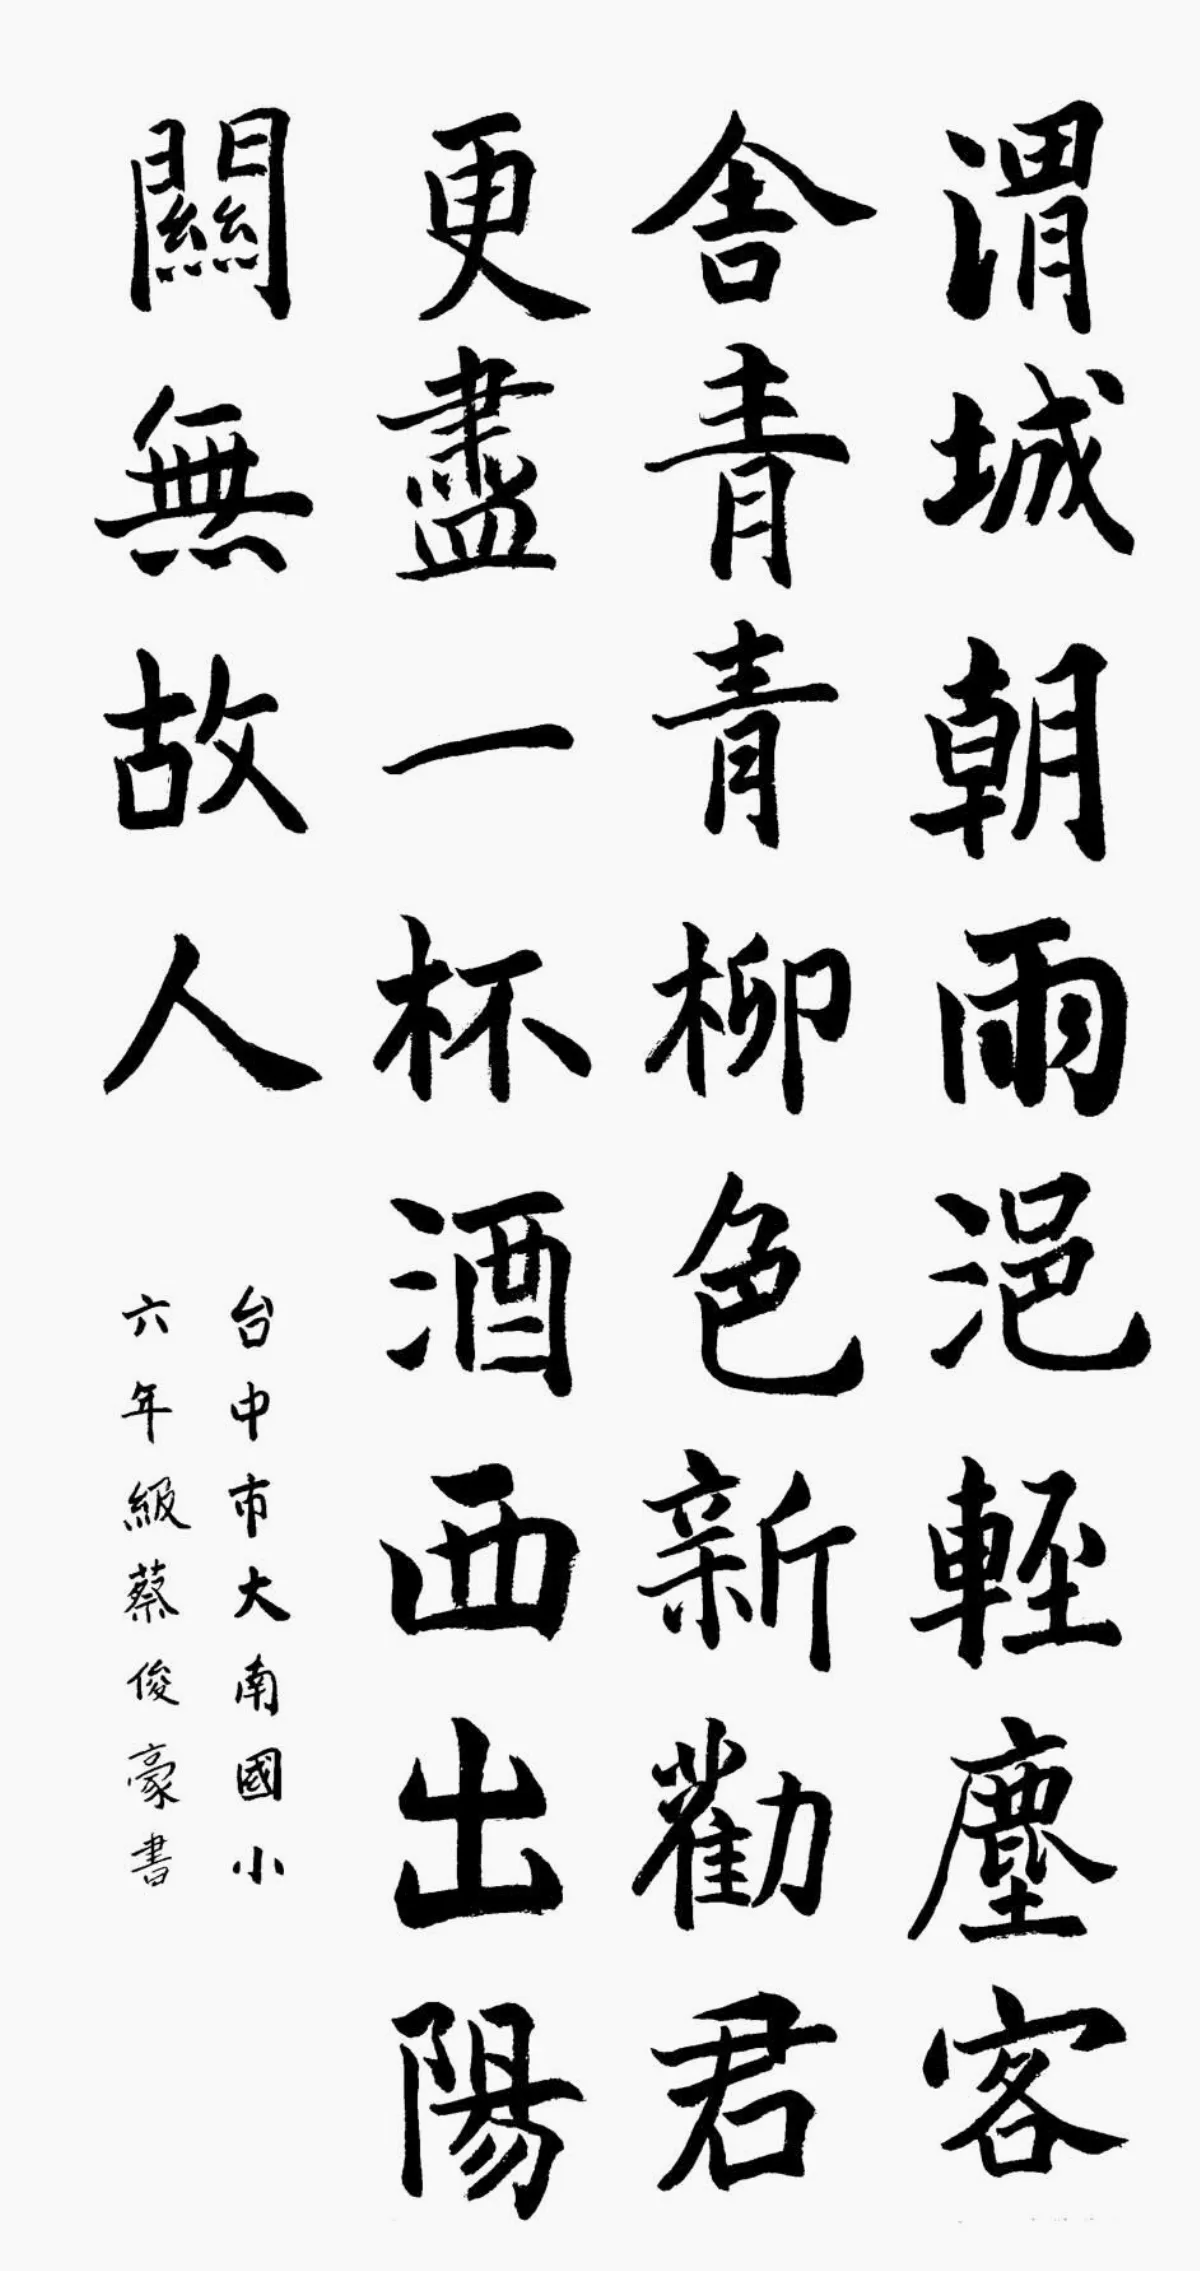 渭城朝雨浥輕塵客
舍青青柳色新勸君
更盡一杯酒西出陽
關無故人
台中市大南國小
六年級蔡俊豪書